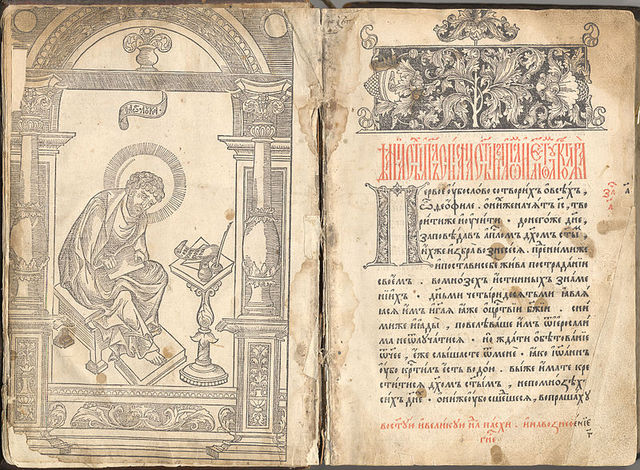 Первое ᲂубо слово сотворихъ ѡ всѣхъ,
ѽ деофиле . ѡ нихже начатъ і҃с, тво
рити же и ᲂучити . донегоже дн҃е,
заповѣдавъ ап҃лом д҃хом ст҃ы
их же избра вознесесѧ . пред ними же
и постави себе жива по страданїи
своемъ . во мнозѣх истинных знаме
нїих . дн҃ьми четыридесѧтьми ꙗвлѧ
ѧсѧ имъ и гл҃ѧ ꙗже о црⷭ҇твїи бж҃їи . с ни
ми же и ꙗды , повелѣваше им ѿ іерⷭ҇али
ма не ѿлꙋчатисѧ . но ждати обѣтованїе
ѿчее , еже слышасте ѿ мене . ꙗко іѡаннъ
ᲂубо крⷭ҇тилъ есть водою . вы же имате кре
ститисѧ д҃хом ст҃ым , не по мнозѣх
сихъ дн҃ех . ѡни же ᲂубо сошедшесѧ , вопрашахꙋ
во ст҃ꙋю и великꙋю нл҃ю пасхи . и на вознесенїе
гн҃е